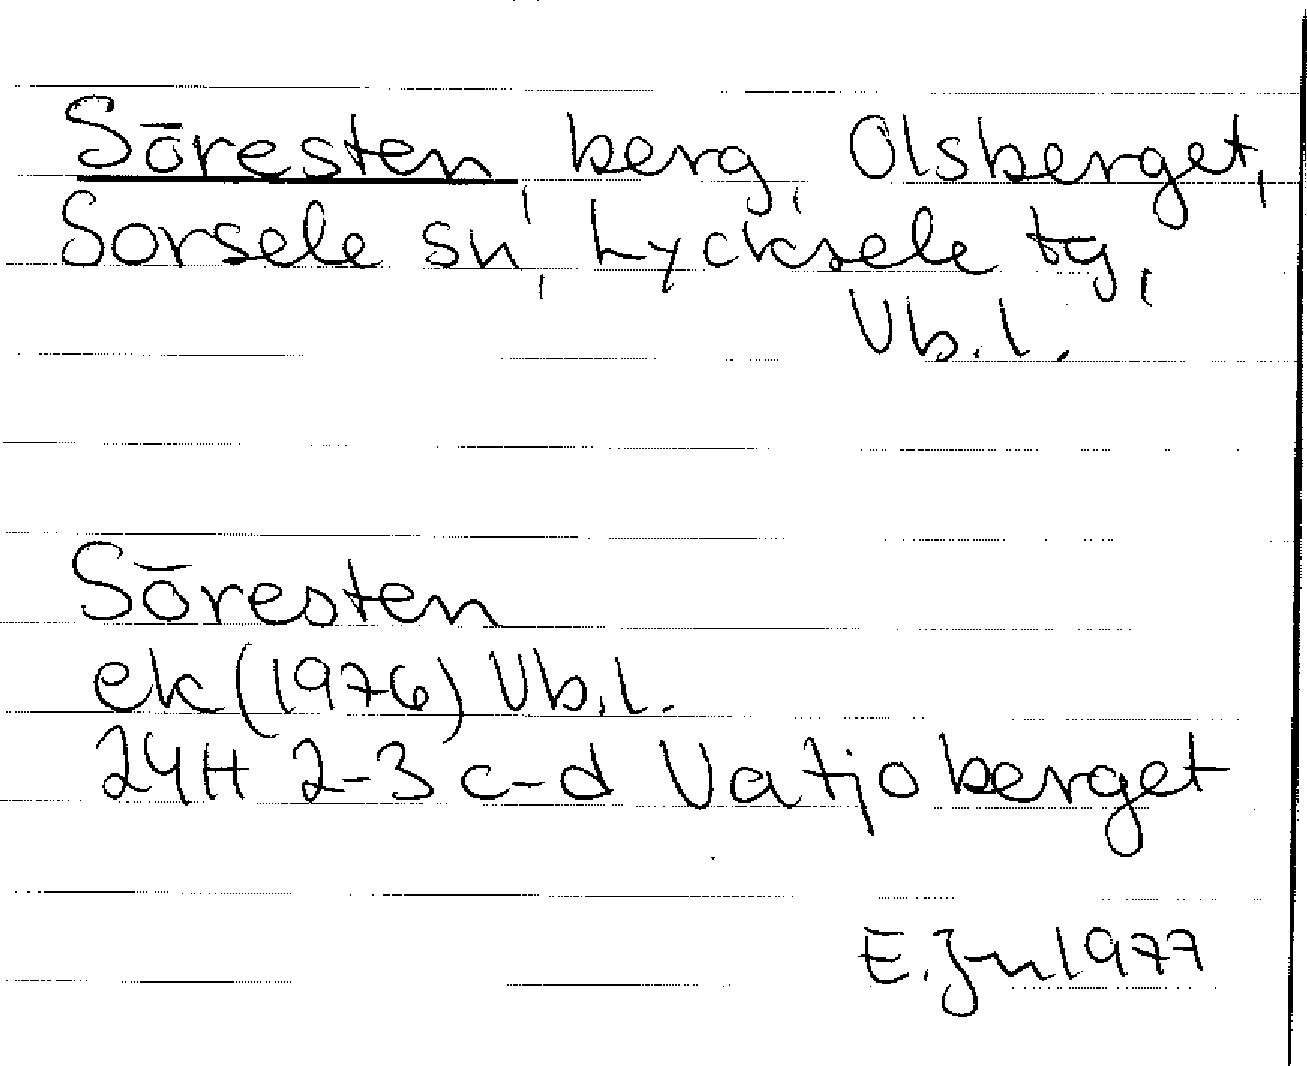 Söresten, berg, Olsberget,
Sorsele sn, Lycksele tg,
Vb.l.
Söresten
ek (1976) Vb.l.
24H 2-3 c-d Vatjoberget
E. Jn 1977